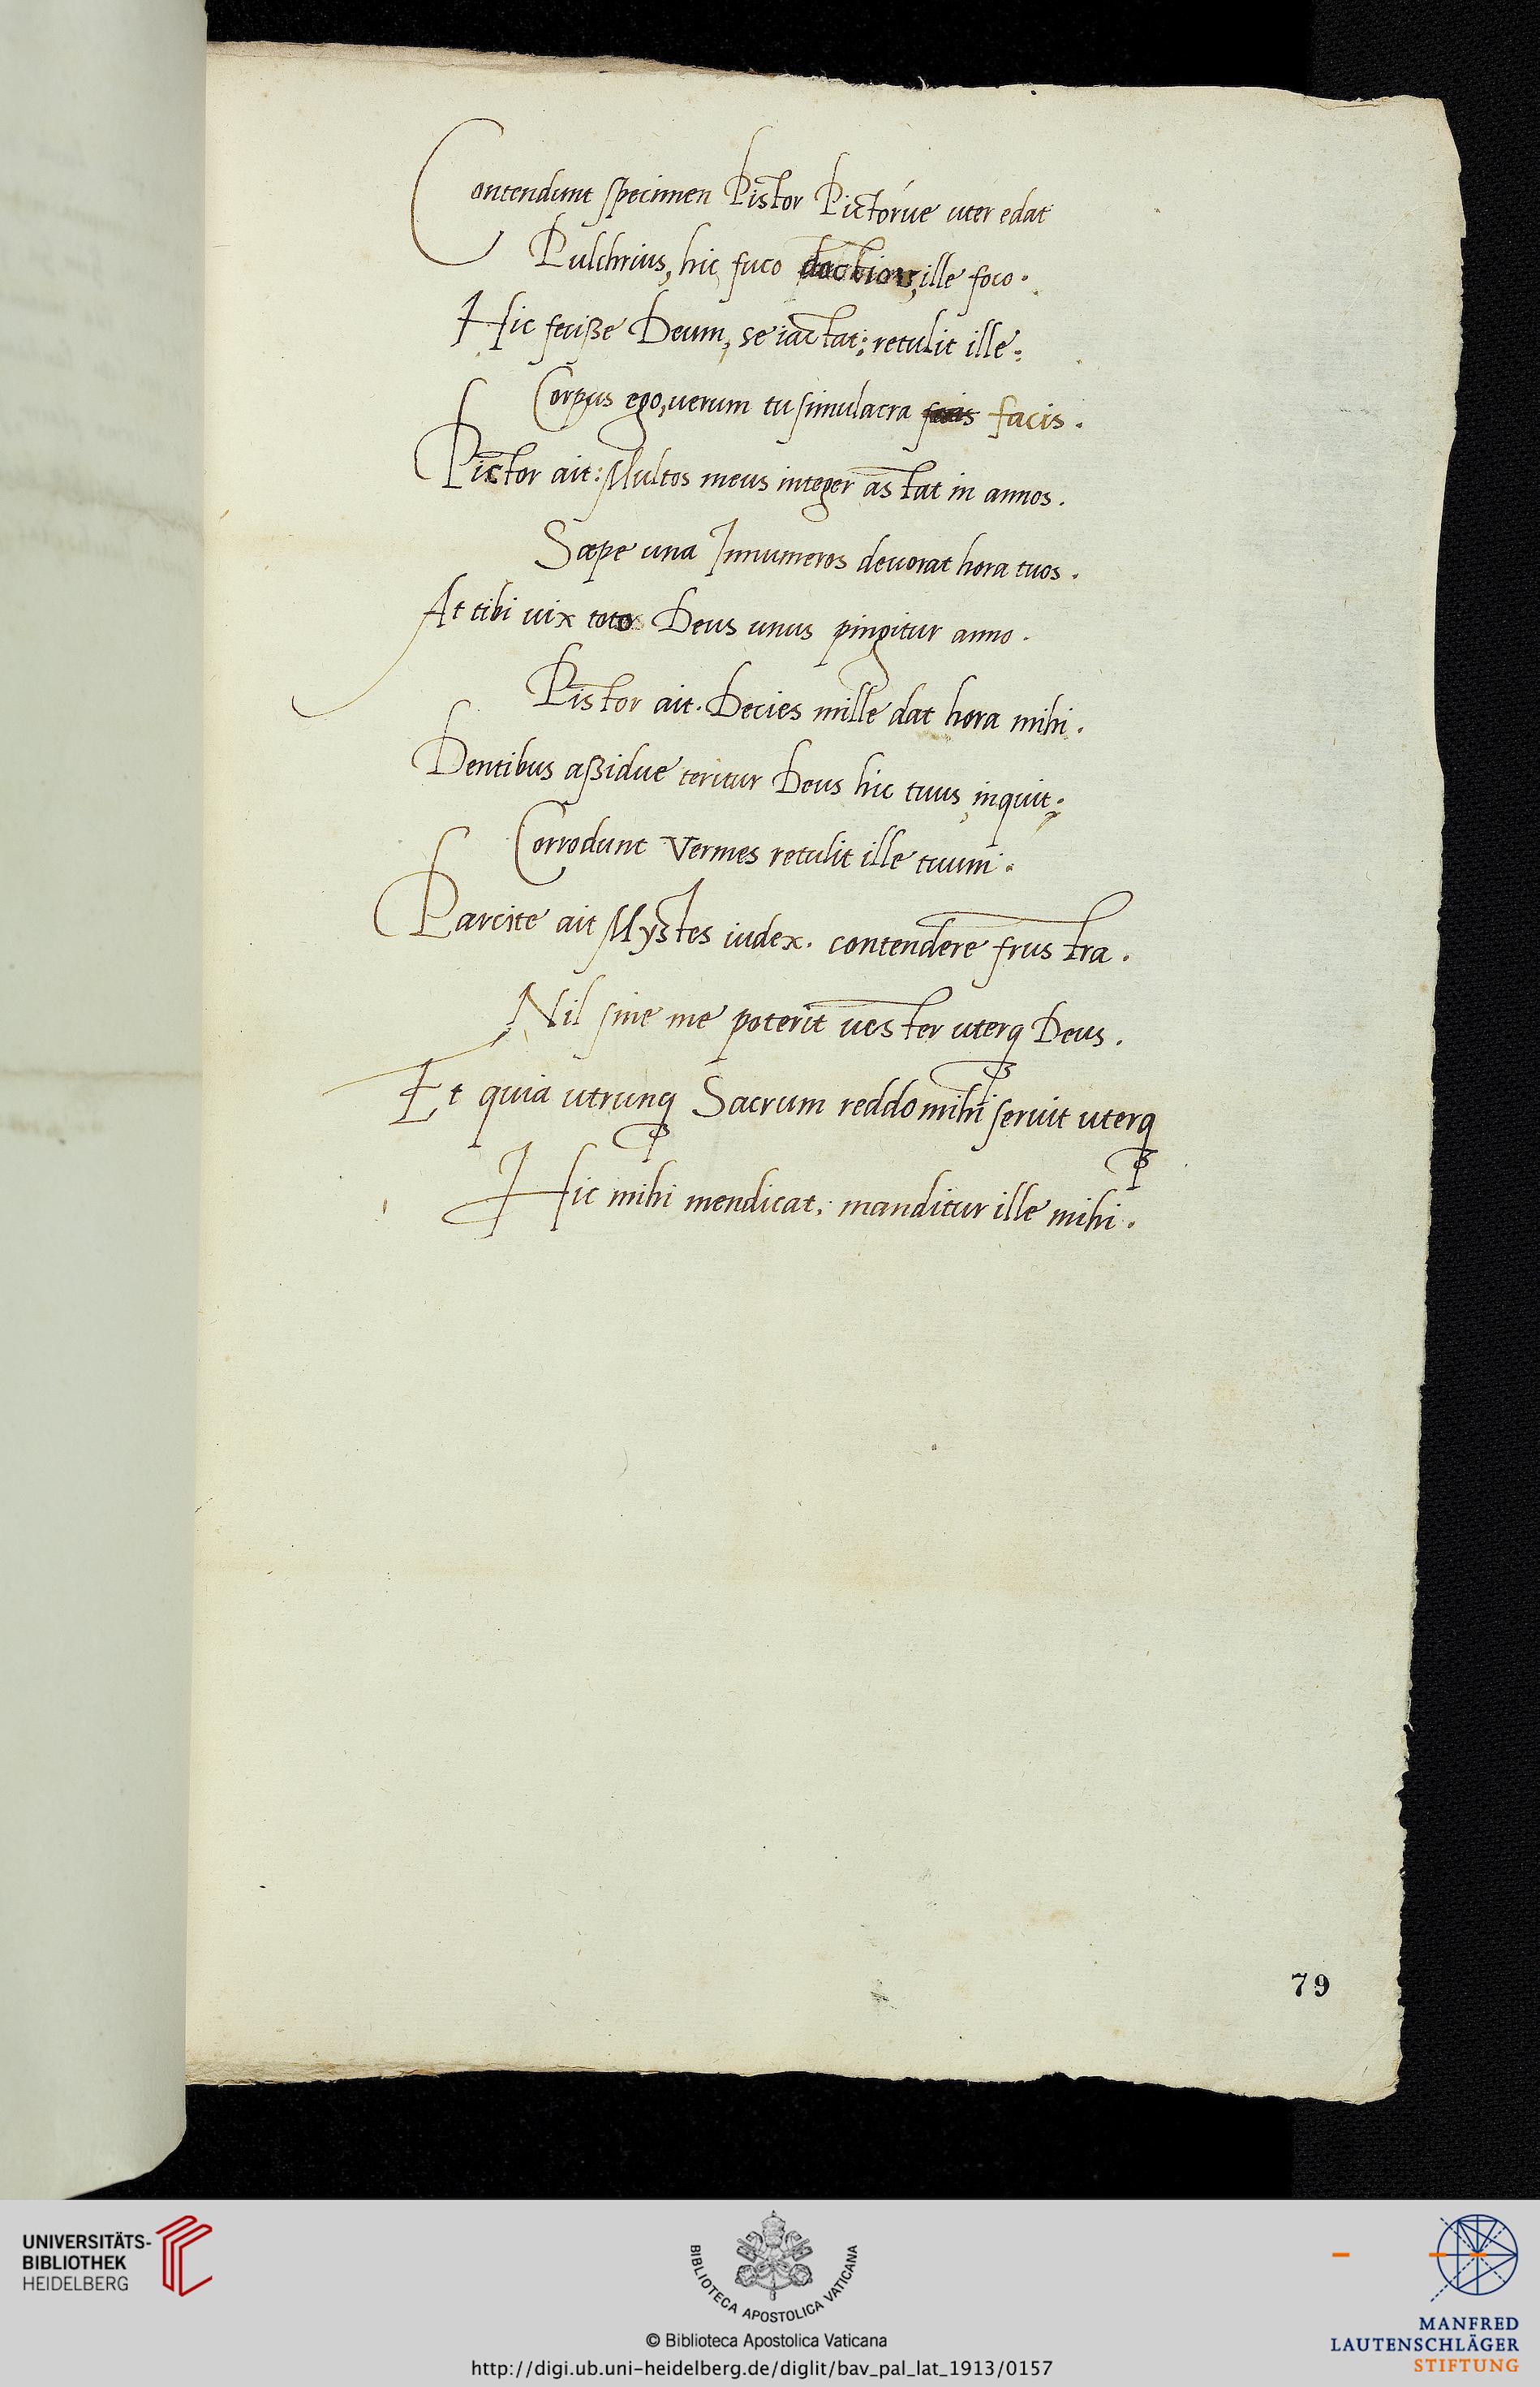 Contendunt specimen Pistor Pictorúe uter edat
Pulchrius, hic fuco doctior, ille foco.
Hic fecisse Deum, se iactat: retulit ille:
Corpus ego, uerum tu simulacra facis.
Pictor ait: Multos meus integer astat in annos.
Sæpe una Innumeros deuorat hora tuos.
At tibi uix toto Deus unus pingitur anno.
Pistor ait. Decies mille dat hora mihi.
Dentibus aßidue teritur Deus hic tuus, inquit;
Corrodunt Vermes retulit ille tuum.
Parcite ait Mystes iudex. contendere frustra.
Nil sine me poterit uester uterq Deus.
Et quia utrunq Sacrum reddo mihi seruit uterq
Hic mihi mendicat; manditur ille mihi.
79
UNIVERSITÄTS-
BIBLIOTHEK
HEIDELBERG
BIBLIOTECA APOSTOLICA VATICANA
© Biblioteca Apostolica Vaticana
http://digi.ub.uni-heidelberg.de/diglit/bav_pal_lat_1913/0157
MANFRED
LAUTENSCHLÄGER
STIFTUNG